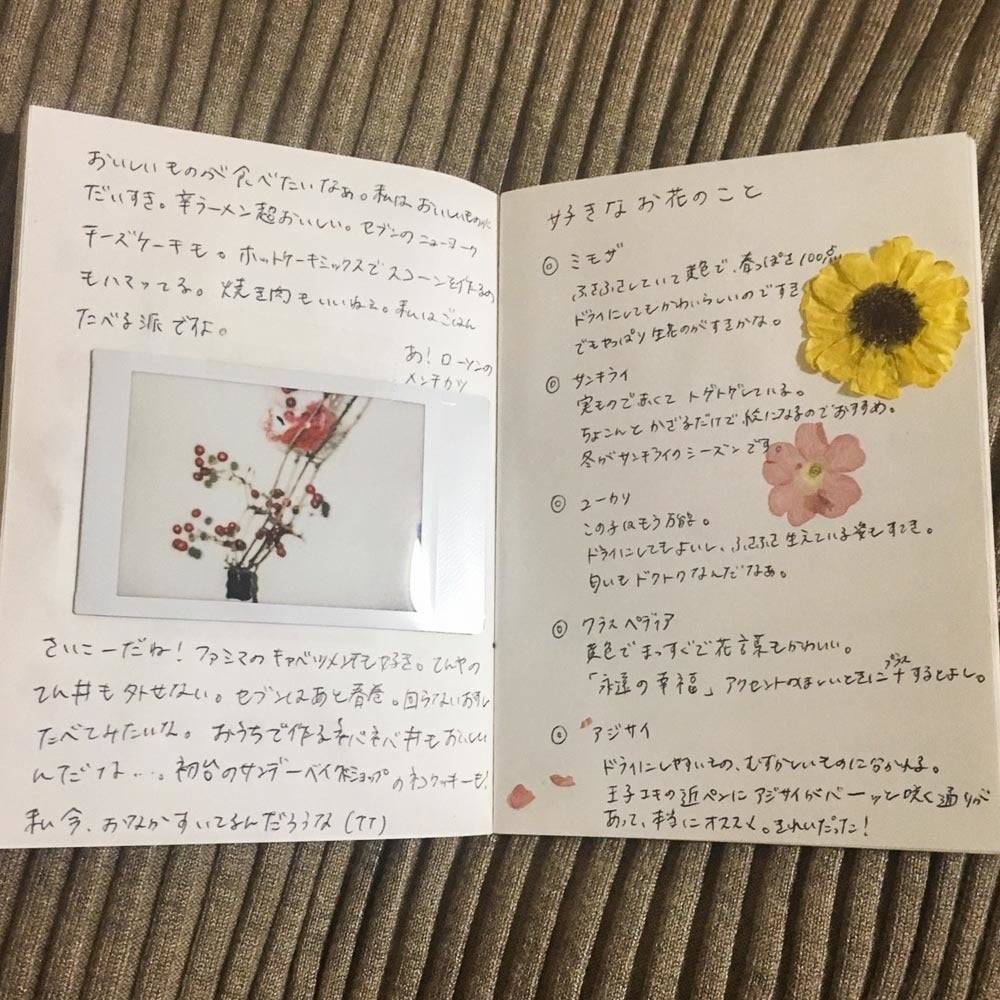 おいしいものが食べたいなぁ。私はおいしいものが
だいすき。辛ラーメン超おいしい。セブンのニューヨーク
チーズケーキも。ホットケーキミックスでスコーンを作るの
もハマってる。焼き肉もいいねぇ。私はごはん
たべる派ですよ。
あ!ローソンの
メンチカツ
さいこーだね!ファミマのキャベツメンチも好き。てんやの
てん丼も外せない。セブンはあと春巻。回らないおすし
たべてみたいな。おうちで作るネバネバ丼もおいしい
んだけな…。初台のサンデーベイクショップのネコクッキーも!
私今、おなかすいてるんだろうな(TT)
好きなお花のこと
◎ ミモザ
ふさふさしていて黄色で、春っぽさ100点
ドライにしてもかわいらしいのですき
でもやっぱり生花のがすきかな。
◎ サンキライ
実もので赤くてトゲトゲしている。
ちょこんとかざるだけで絵になるのでおすすめ。
冬がサンキライのシーズンです。
◎ ユーカリ
この子はもう万能。
ドライにしてもよいし、ふさふさ生えている姿もすてき。
匂いもドクトクなんだなぁ。
◎ クラスペディア
黄色でまっすぐで花言葉もかわいい。
「永遠の幸福」アクセントのほしいときに+プラスするとよし。
◎ アジサイ
ドライにしやすいもの、むずかしいものに分かれる。
王子エキの近ペンにアジサイがバーッと咲く通りが
あって、本当にオススメ。きれいだった!